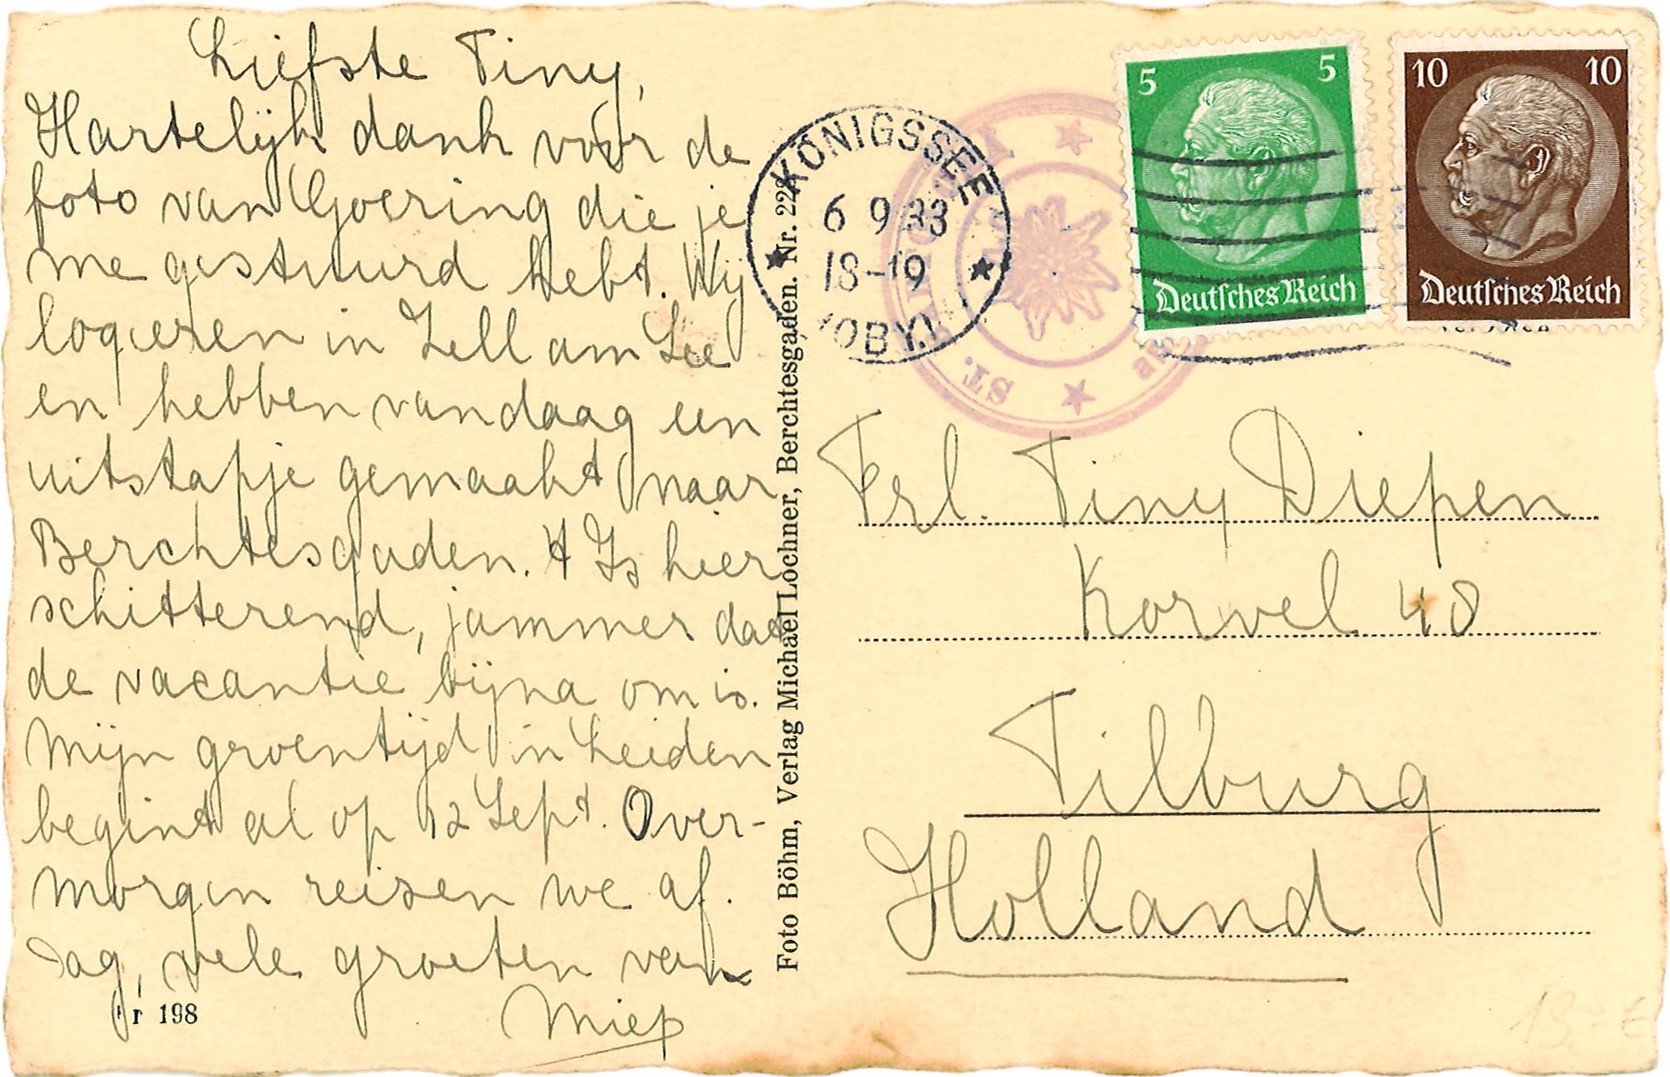 Liefste Tiny,
Hartelijk dank voor de
foto van Goering die je
me gestuurd hebt. Wij
logeren in Zell am See
en hebben vandaag een
uitstapje gemaakt naar
Berchtesgaden. 't Is hier
schitterend, jammer dat
de vacantie bijna om is.
Mijn groentijd in Leiden
begint al op 12 Sept. Over-
morgen reizen we af.
Dag, vele groeten van
Miep
198
Foto Böhm, Verlag Michael Lochner, Berchtesgaden. Nr. 228
KÖNIGSSEE
6 9 38
18-19
(OBY.)
ST.
5 5
Deutsches Reich
10 10
Deutsches Reich
Frl. Tiny Diepen
Korvel 48
Tilburg
Holland
13.- €